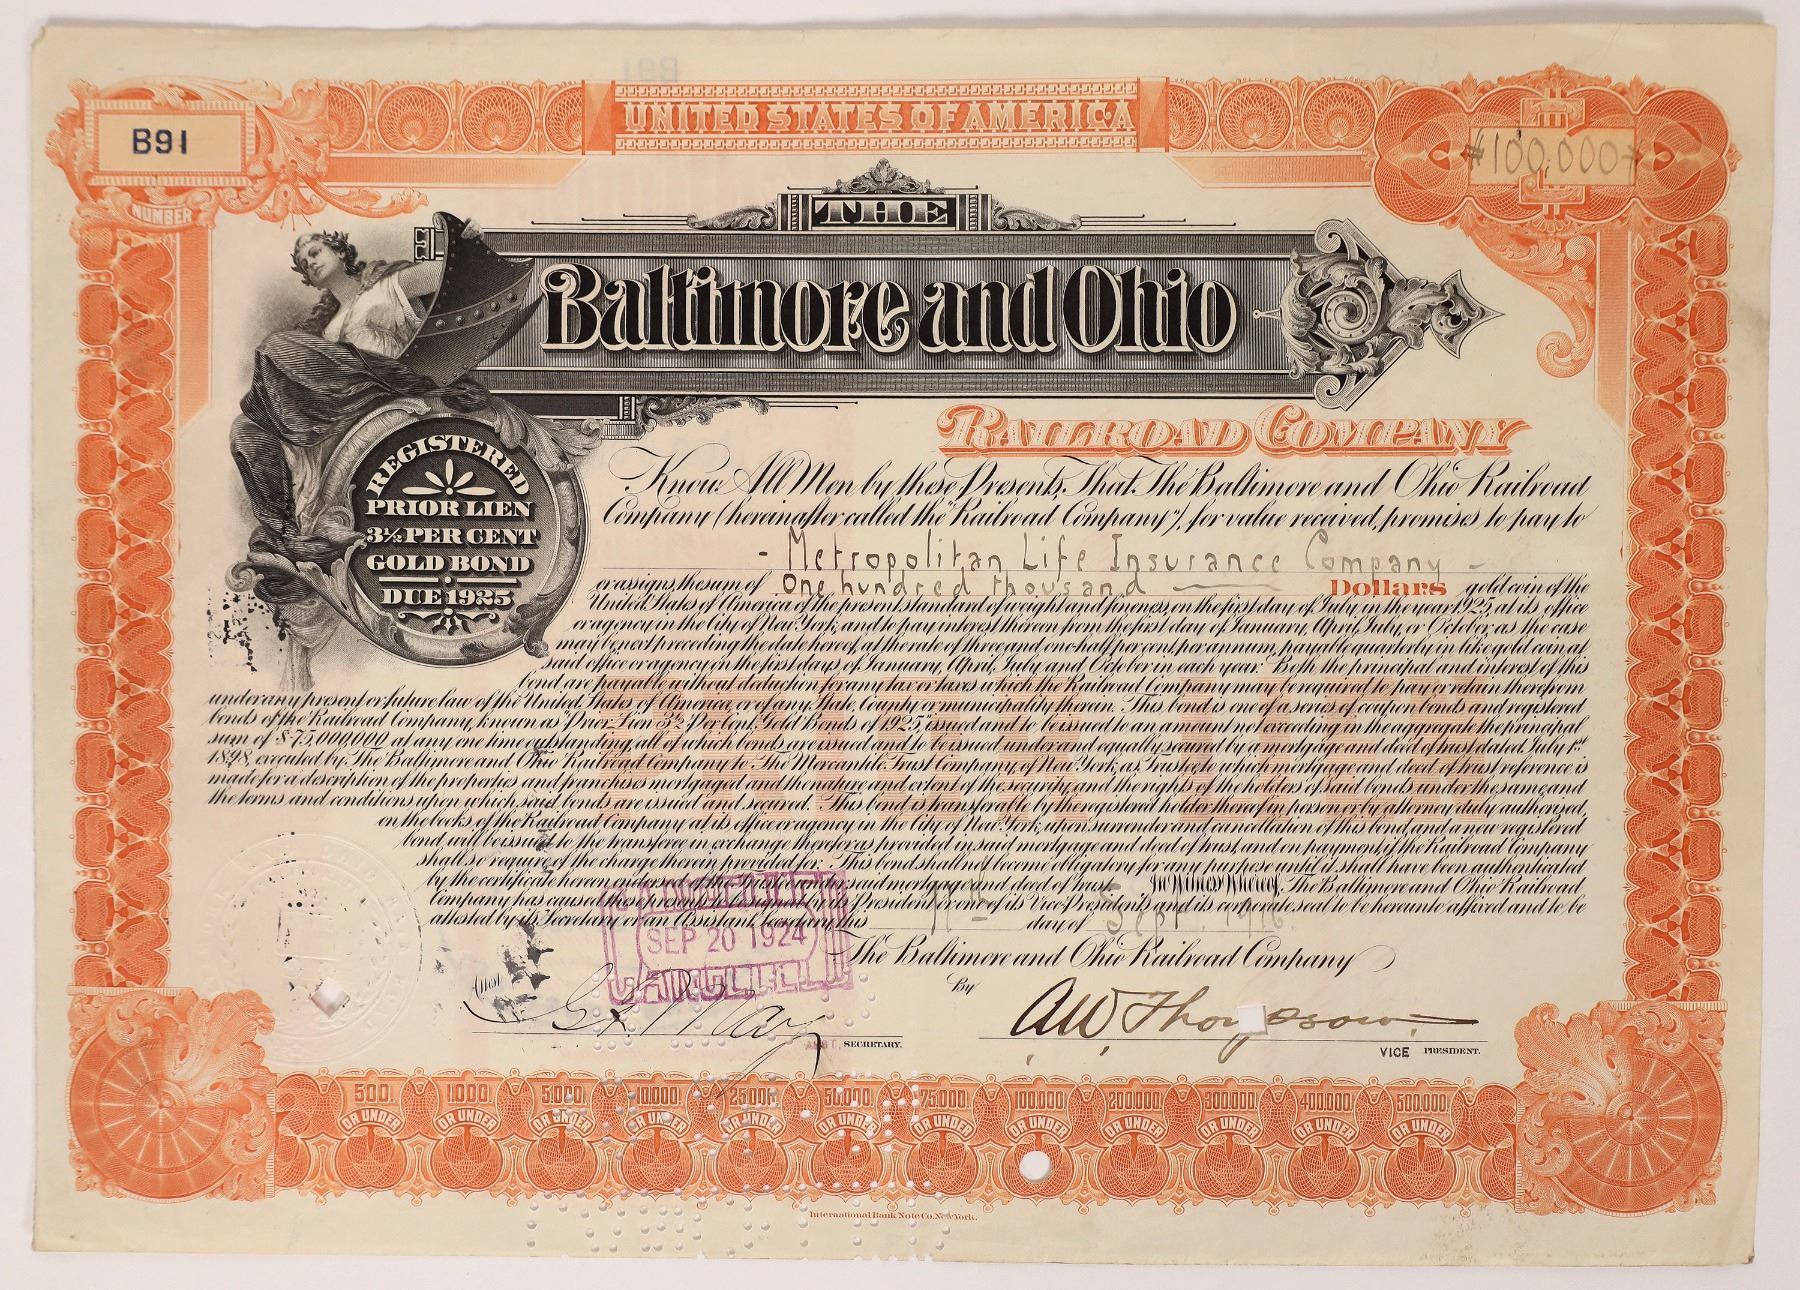 UNITED STATES OF AMERICA
B91
NUMBER
#100,000#
THE
Baltimore and Ohio
RAILROAD COMPANY
REGISTERED
PRIOR LIEN
3½ PER CENT
GOLD BOND
DUE 1925
Know All Men by these Presents, That The Baltimore and Ohio Railroad
Company (hereinafter called the "Railroad Company"), for value received, promises to pay to
- Metropolitan Life Insurance Company -
or assigns, the sum of One hundred thousand Dollars gold coin of the
United States of America of the present standard of weight and fineness, on the first day of July, in the year 1925, at its office
or agency in the City of New York, and to pay interest thereon from the first day of January, April, July, or October, as the case
may be next preceding the date hereof, at the rate of three and one-half per cent, per annum, payable quarterly in like gold coin, at
said office or agency on the first days of January, April, July and October in each year. Both the principal and interest of this
bond are payable without deduction for any tax or taxes which the Railroad Company may be required to pay or retain therefrom
under any present or future law of the United States of America, or of any State, County or municipality therein. This bond is one of a series of coupon bonds and registered
bonds of the Railroad Company, known as "Prior Lien 3½ Per Cent. Gold Bonds of 1925," issued and to be issued to an amount not exceeding in the aggregate the principal
sum of $75,000,000 at any one time outstanding, all of which bonds are issued and to be issued under and equally secured by a mortgage and deed of trust dated July 1st
1898, executed by The Baltimore and Ohio Railroad Company to The Mercantile Trust Company, of New York, as Trustee, to which mortgage and deed of trust reference is
made for a description of the properties and franchises mortgaged and the nature and extent of the security, and the rights of the holders of said bonds under the same, and
the terms and conditions upon which said bonds are issued and secured. This bond is transferable by the registered holder thereof in person or by attorney duly authorised,
on the books of the Railroad Company at its office or agency in the City of New York, upon surrender and cancellation of this bond, and a new registered
bond, will be issued to the transferee in exchange therefor as provided in said mortgage and deed of trust, and on payment, if the Railroad Company
shall so require, of the charge therein provided for. This bond shall not become obligatory for any purpose until it shall have been authenticated
by the certificate hereon endorsed of the Trustee under said mortgage and deed of trust. In Witness Whereof, The Baltimore and Ohio Railroad
Company has caused these presents to be signed by its President or one of its Vice Presidents and its corporate seal to be hereunto affixed and to be
attested by its Secretary or an Assistant Secretary this 11th day of Sept
CANCELLED
SEP 20 1924
The Baltimore and Ohio Railroad Company
Attest
By
A W Thompson
ASST. SECRETARY.
VICE PRESIDENT.
500. OR UNDER
1,000. OR UNDER
5,000 OR UNDER
10,000. OR UNDER
25,000. OR UNDER
50,000. OR UNDER
75,000 OR UNDER
100,000 OR UNDER
200,000 OR UNDER
300,000 OR UNDER
400,000 OR UNDER
500,000 OR UNDER
International Bank Note Co. New York.